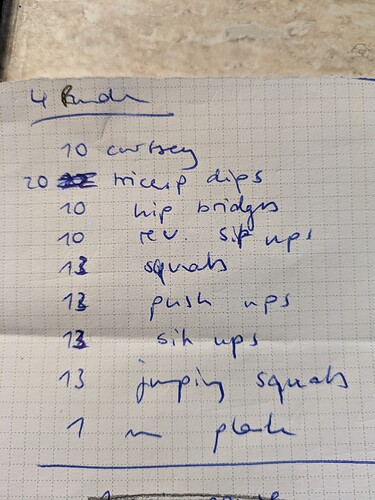 4 Runden
10 curtsey
20 tricep dips
10 hip bridges
10 rev. sit ups
13 squats
13 push ups
13 sit ups
13 jumping squats
1 m plank